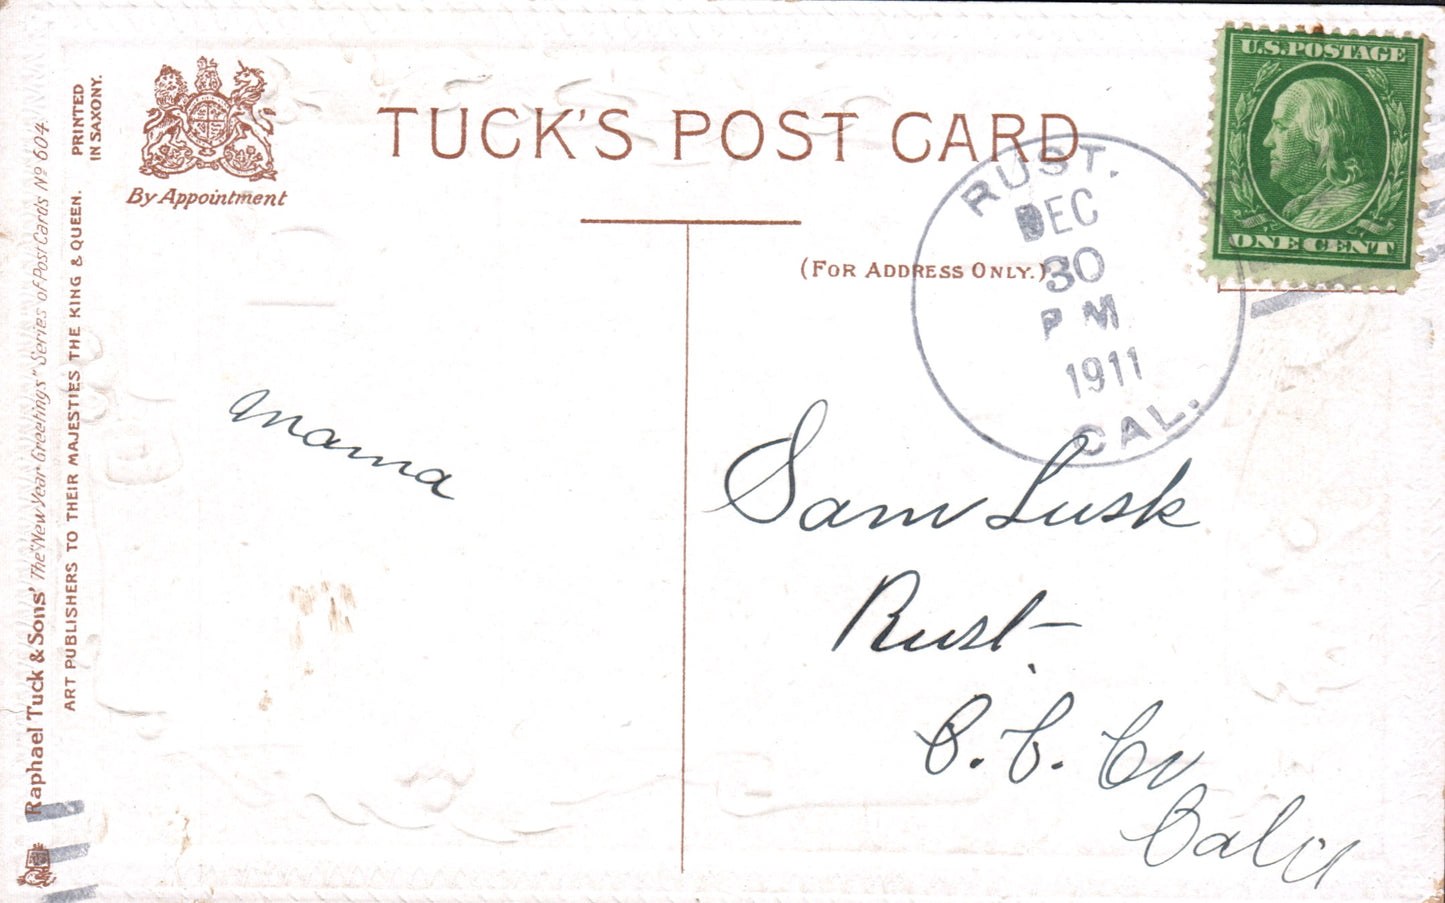 TUCK'S POST CARD
By Appointment
PRINTED
IN SAXONY.
Raphael Tuck & Sons' The "New Year Greetings" Series of Post Cards No 604.
ART PUBLISHERS TO THEIR MAJESTIES THE KING & QUEEN.
(FOR ADDRESS ONLY.)
U.S. POSTAGE
ONE CENT
RUST.
DEC
30
P M
1911
CAL.
Mama
Sam Lusk
Rust
C. C. Co